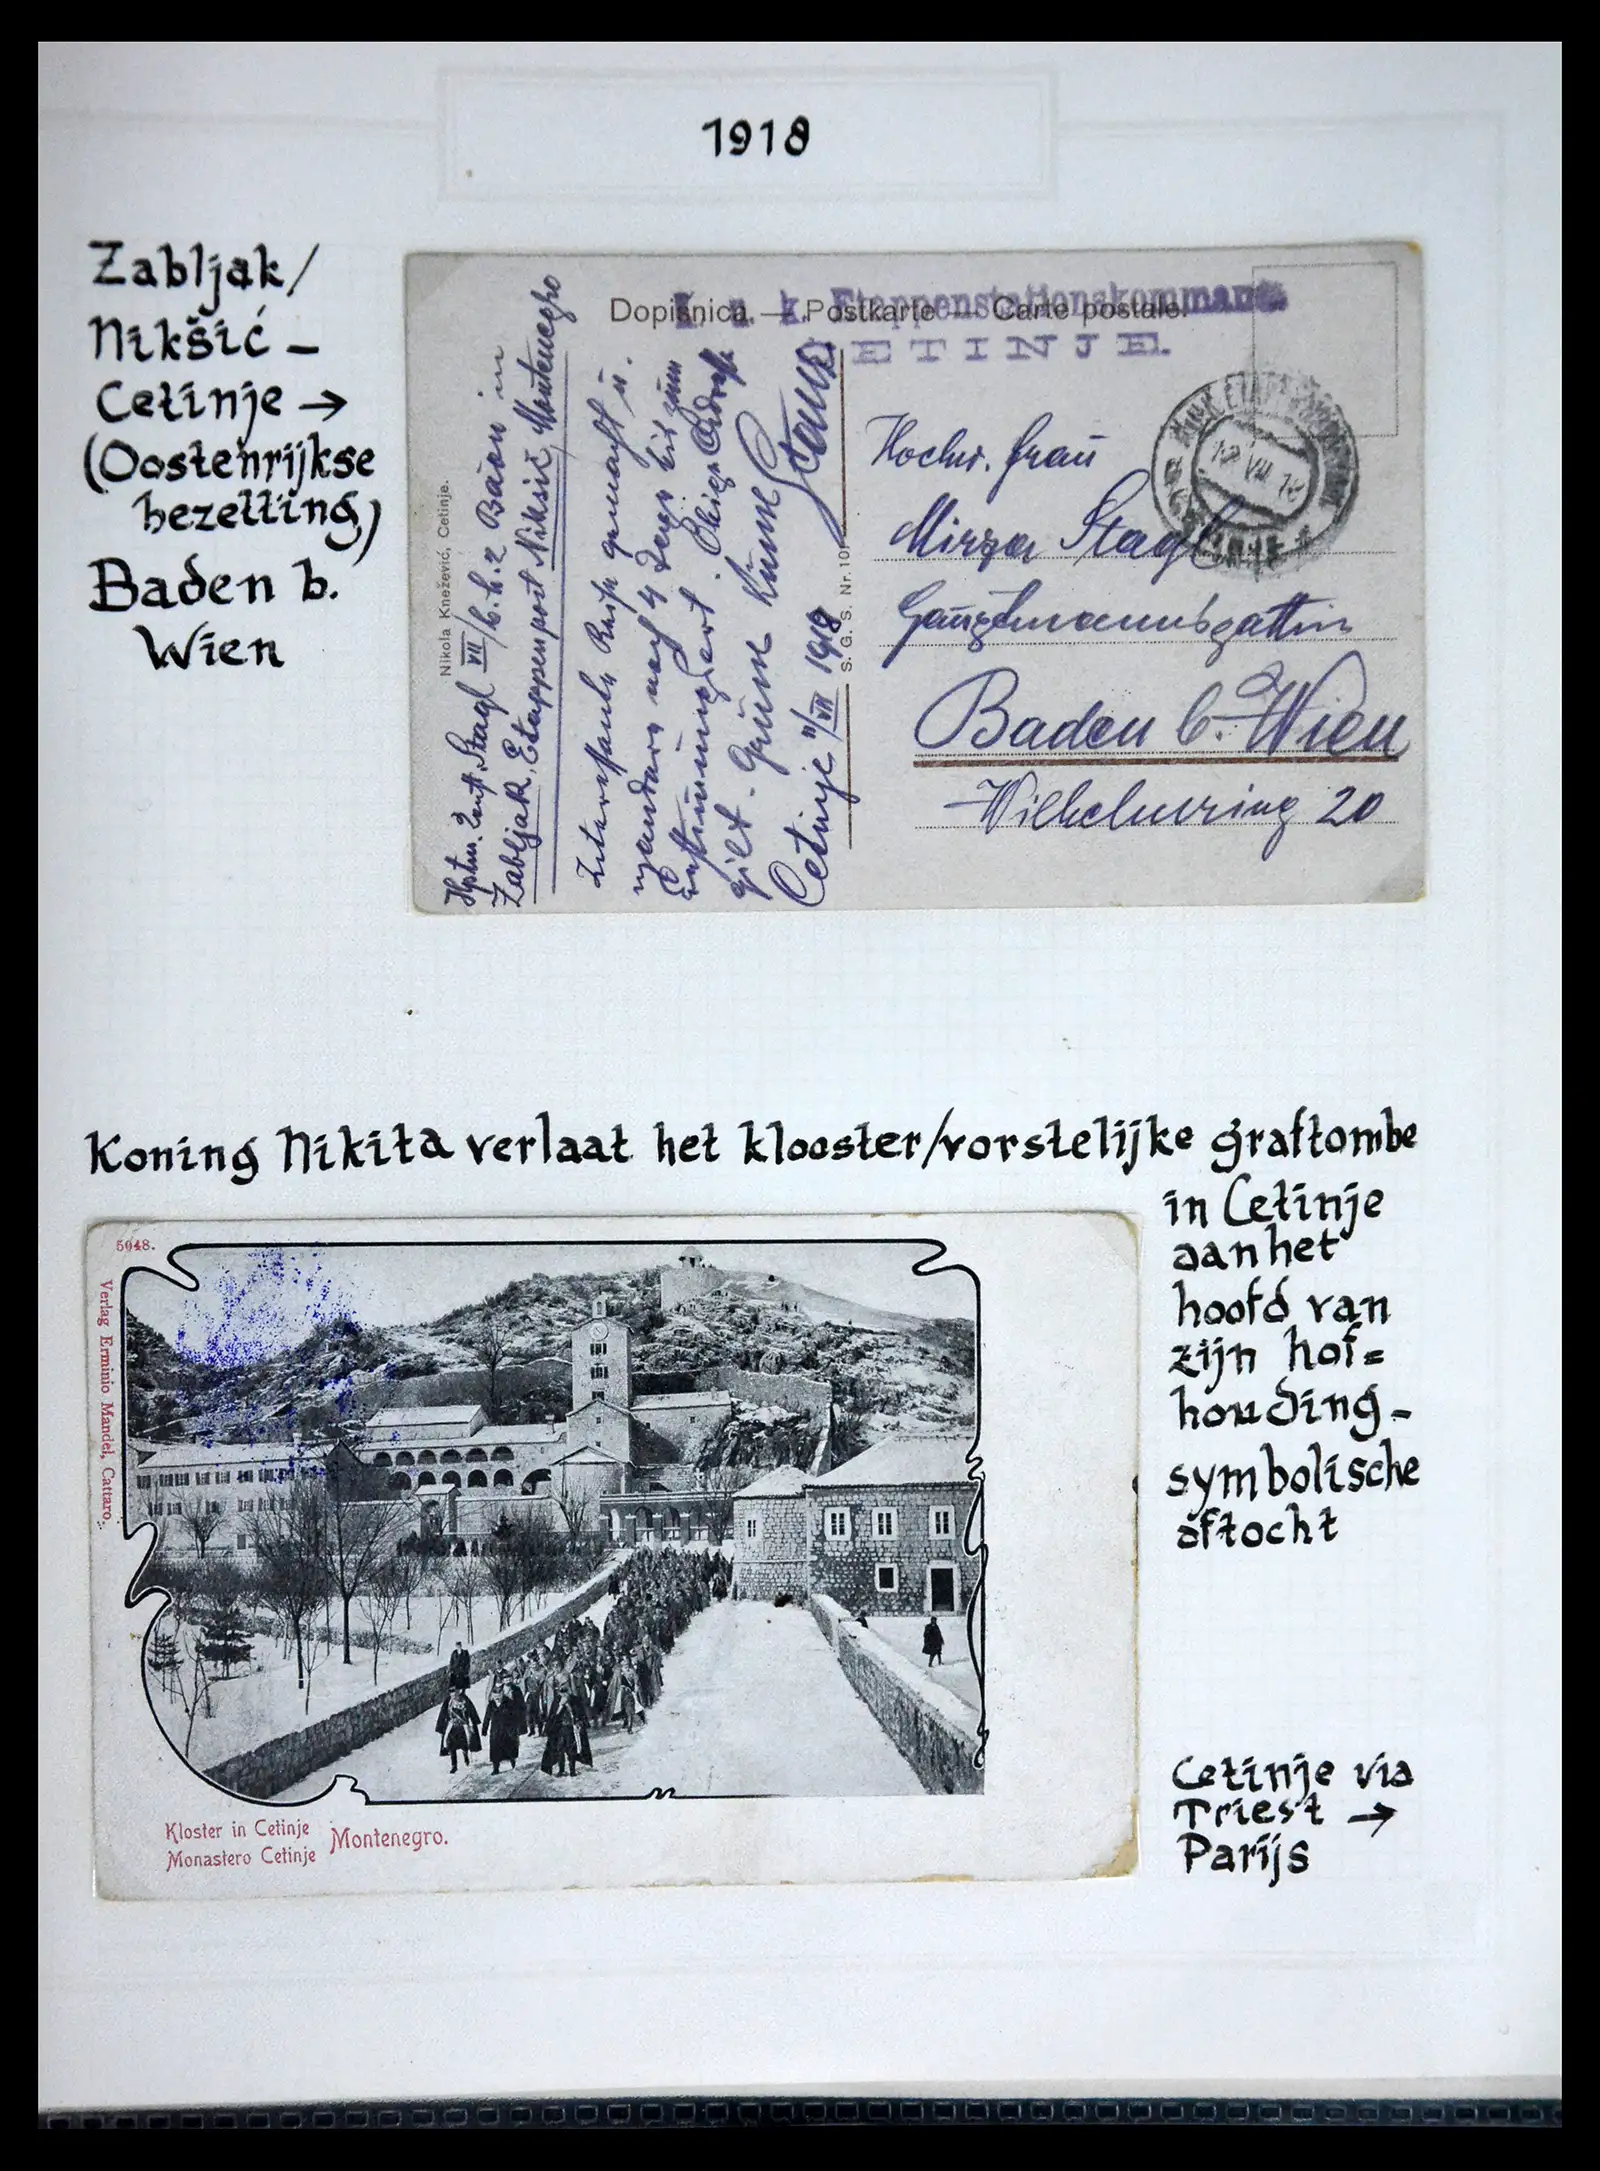 1918
Zabljak/
Nikšić –
Cetinje →
(Oostenrijkse
bezetting)
Baden b.
Wien
Dopisnica — Postkarte — Carte postale.
K. u. k. Etappenstationskommando
CETINJE.
Nikola Knežević, Cetinje.
S. G. S. Nr. 10
Hptm. Stagl VII/ b.h. 2 Baon in
Zabljak, Etappenpost Nikšić, Montenegro
Interessante Reise gemacht u.
nach 4 Tage bis zum
gilt. Grüsse Küsse
Cetinje 11/VII 1918
Hochw. Frau
Mirza Stagl
Hauptmannsgattin
Baden b. Wien
Wilhelmring 20
12 VII 18
Koning Nikita verlaat het klooster/vorstelijke graftombe
in Cetinje
aan het
hoofd van
zijn hof=
houding –
symbolische
aftocht
5048.
Verlag Erminio Mandel, Cattaro.
Kloster in Cetinje
Monastero Cetinje
Montenegro.
Cetinje via
Triest →
Parijs